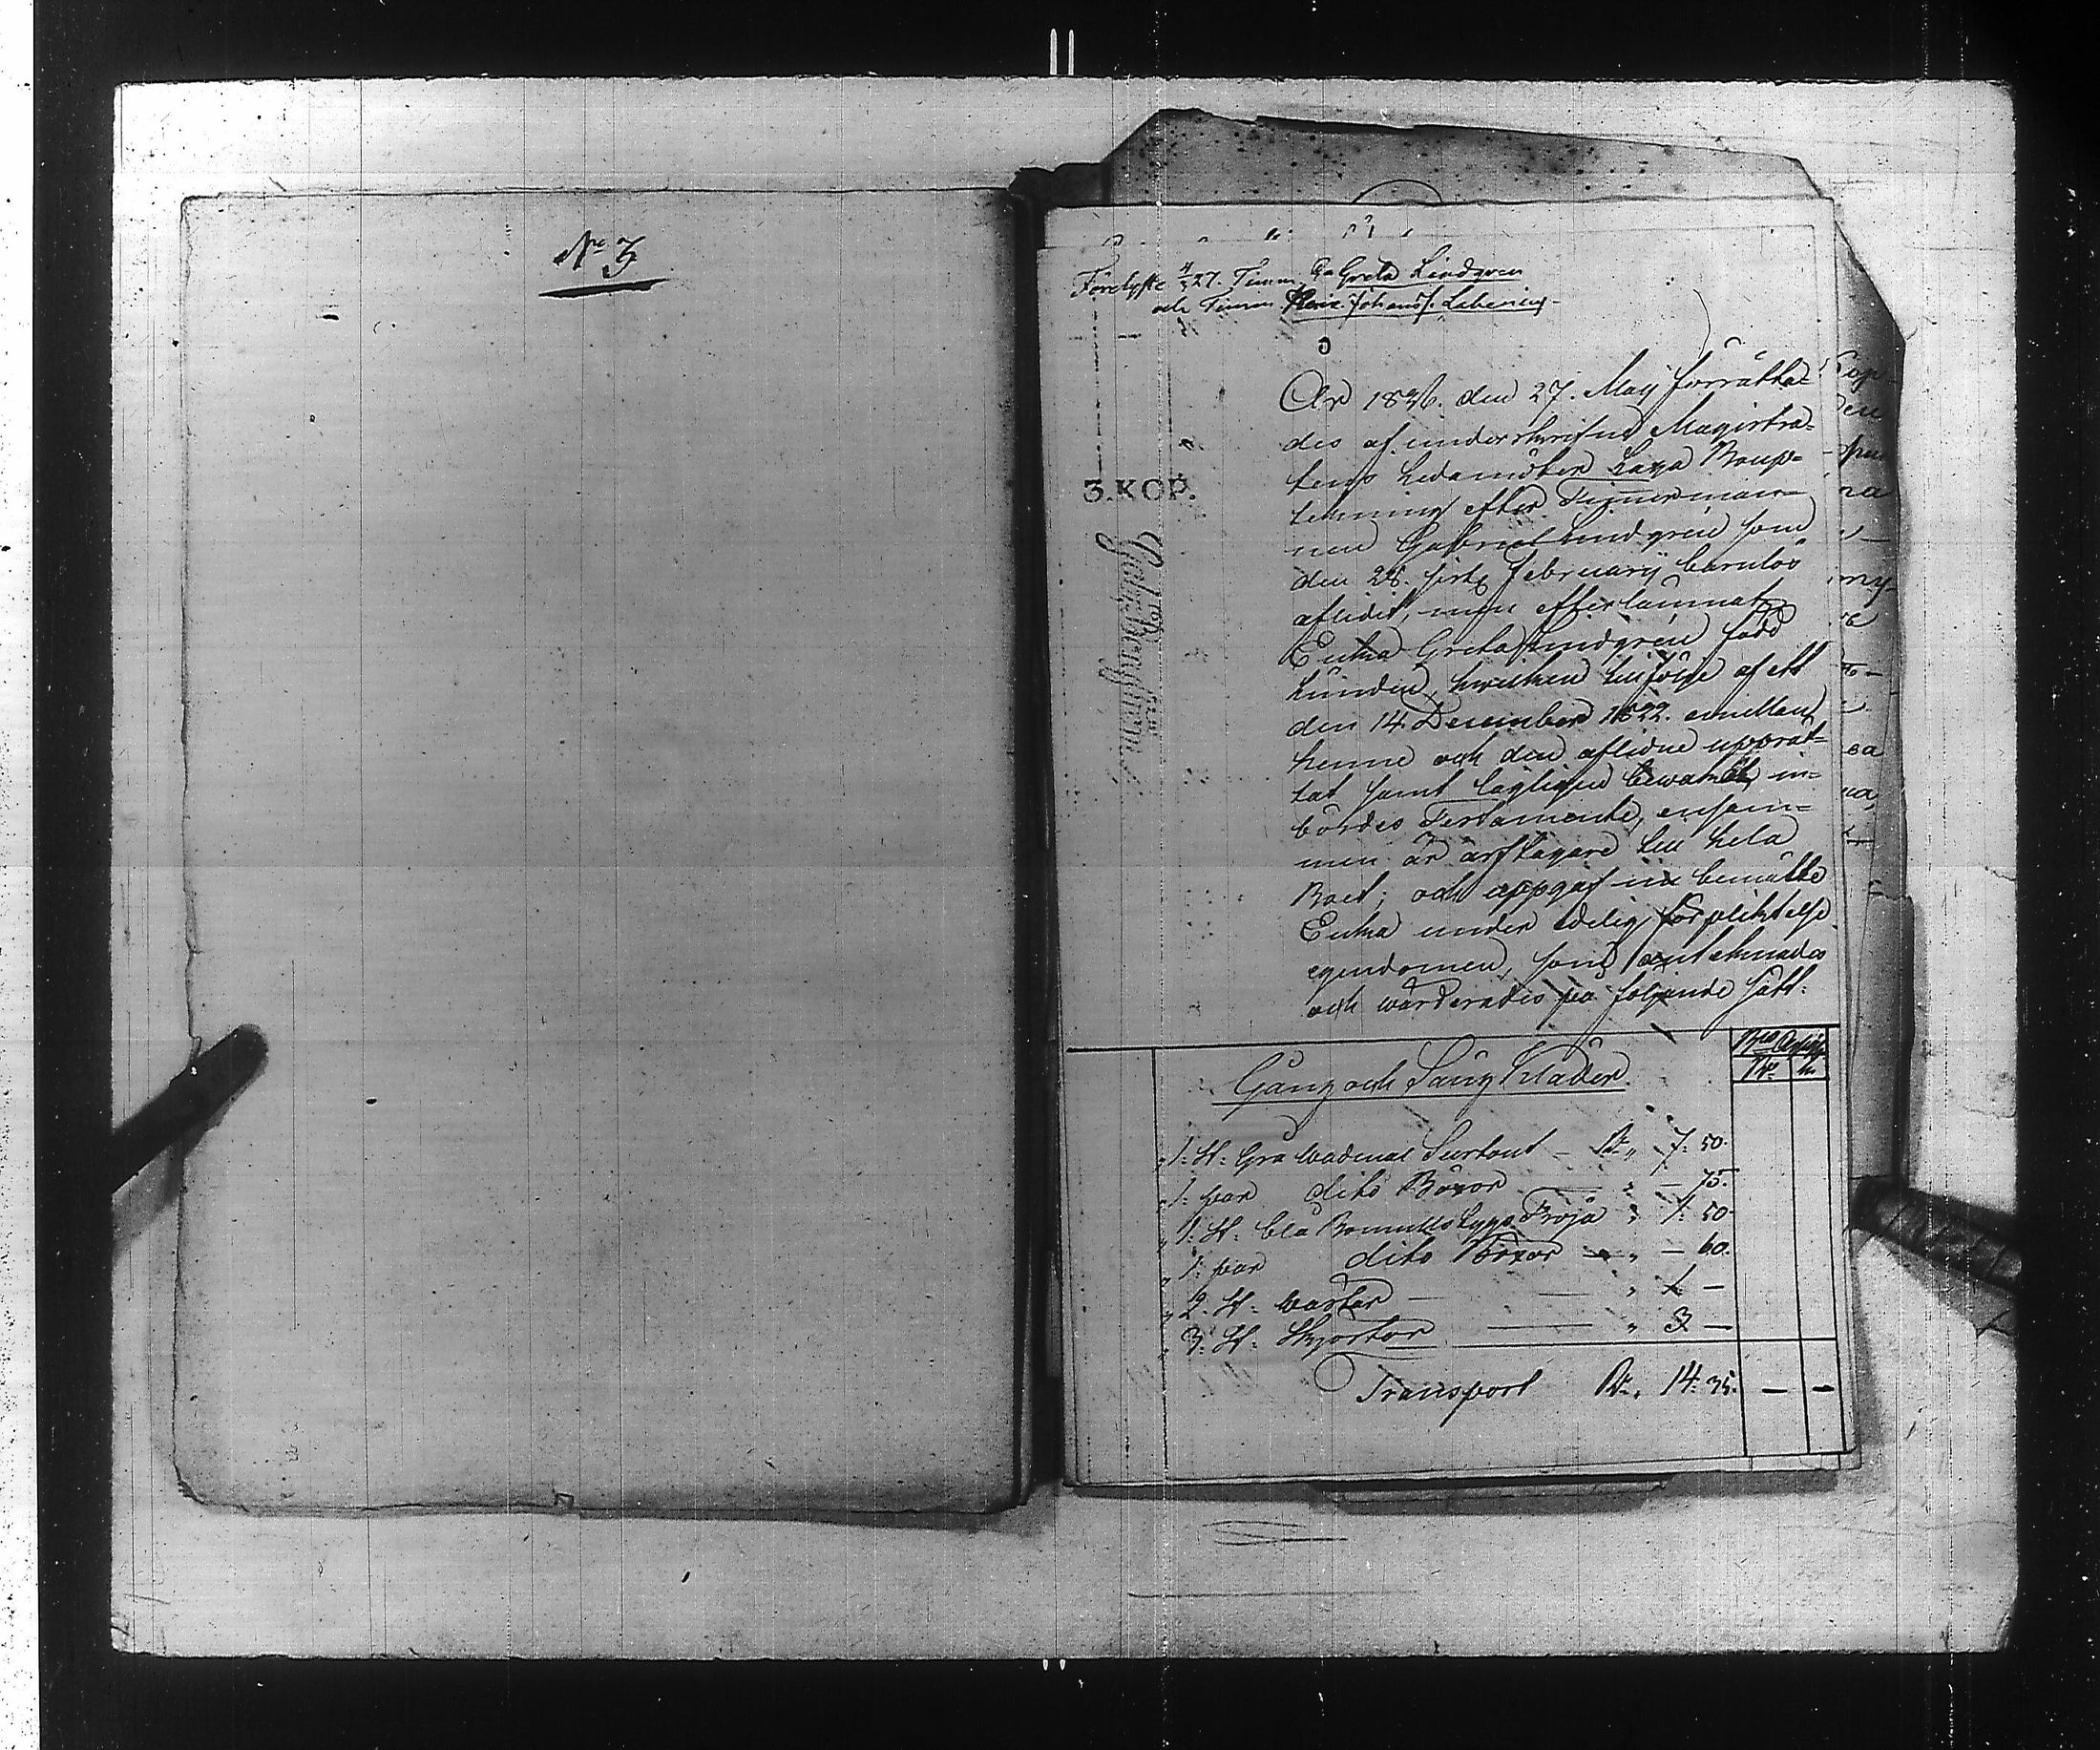 No 3
Förelyste 4/9 27. Timm. Ea Greta Lindgren
och Timm Johansf. Labenius
3. KOP.
År 1836. den 27. Maij förrätta-
des af underskrifne Magistra-
tens Ledamöter Laga Boup-
tekning efter Timmerman-
nen Gabriel Lindgrén som
den 28. sistl. February barnlös
aflidit, men efterlämnat
Enka Greta Lindgrén född
Lundén, hvilken till följe af ett
den 14 December 1822. emellan
henne och den aflidne upprät-
tat samt lagligen bewakat in-
bördes Testamente, ensam-
men är arftagare till hela
Boet; och uppgaf nu bemälte
Enka under edelig förpliktelse
egendomen, som antecknades
och wärderades på följande sätt:
Bco Assign.
Gång och Säng kläder.
" 1. St: Grå wadmal Surtout - Rr " 7: 50.
" 1: par dito Böxor " - 75.
" 1: St: blå Bomullstygs Tröja " 1: 50
" 1: par dito Böxor " - 60.
" 2. St: wästar - " 1 -
" 3: St: Skjortor " 3 -
Transport Rr " 14: 35. - -